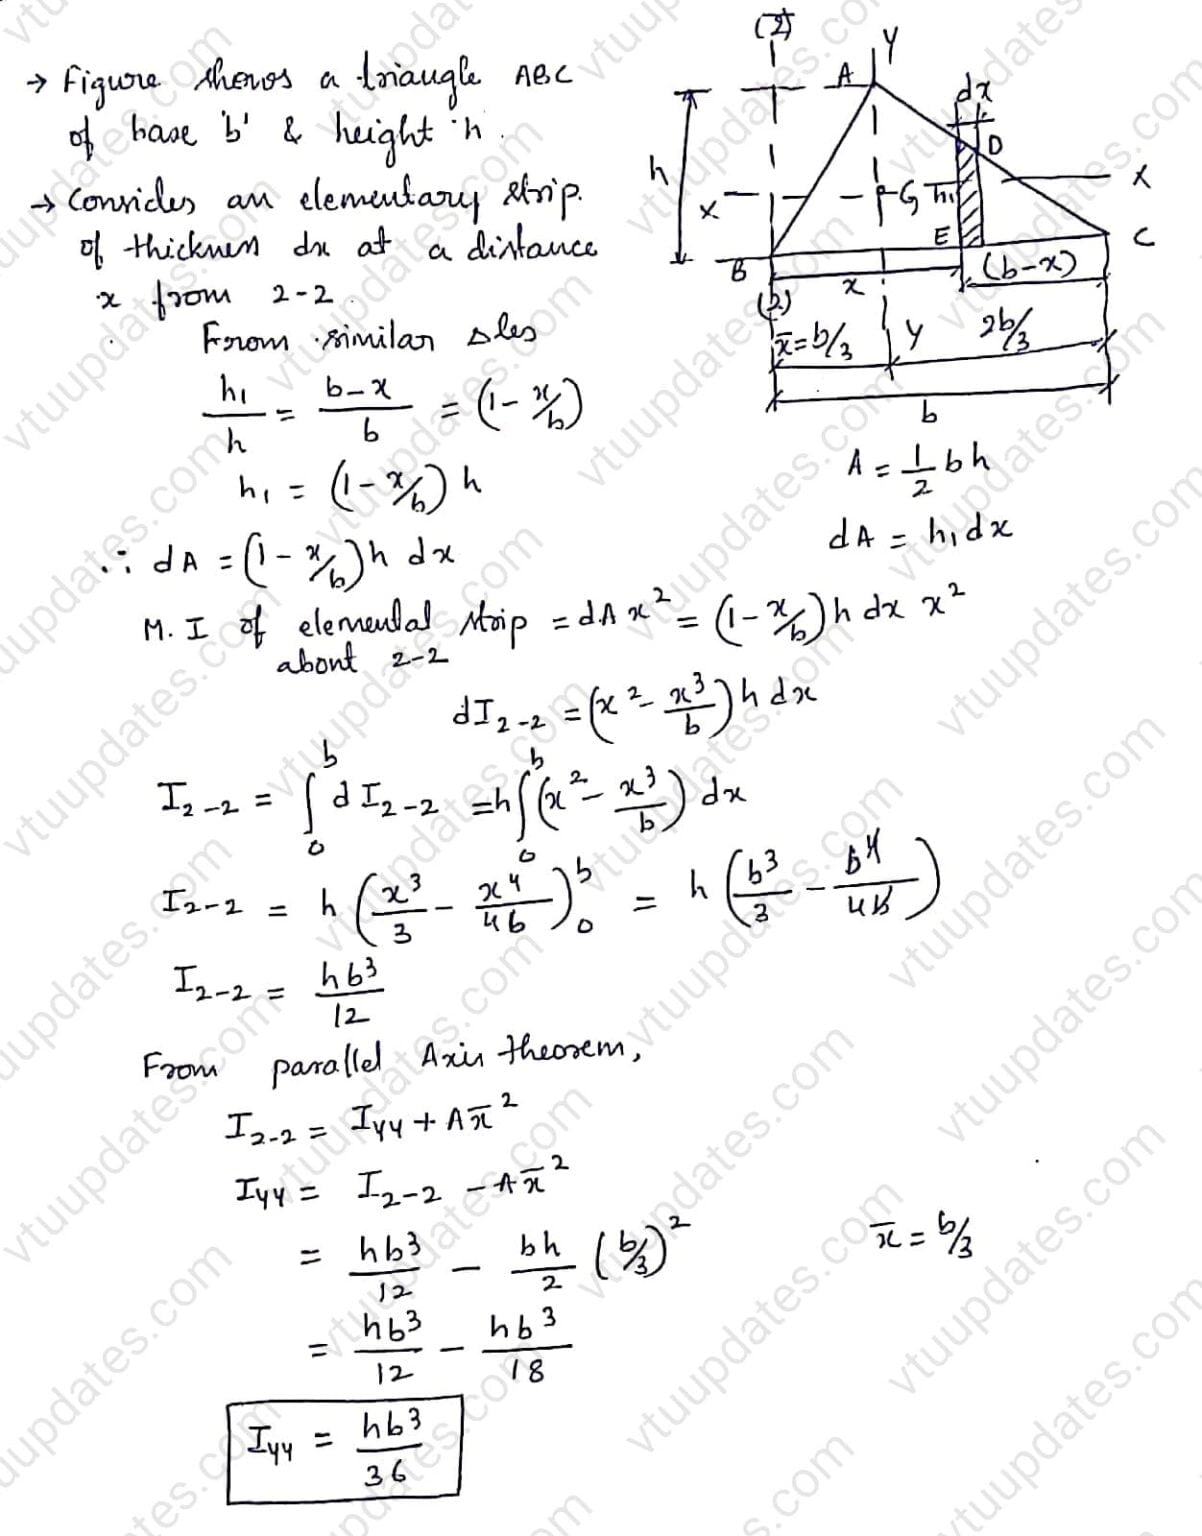 → Figure shows a triangle ABC
of base 'b' & height 'h'.
→ Consider an elementary strip.
of thickness dx at a distance
x from 2-2.
From similar Δles
h₁/h = (b-x)/b = (1-x/b)
h₁ = (1-x/b) h
∴ dA = (1-x/b) h dx
(2)
Y
A
dx
D
h
x
G
h₁
X
E
C
B
(2)
x
(b-x)
x̄=b/3
Y
2b/3
b
A = 1/2 bh
dA = h₁dx
M.I of elemental strip = dA x² = (1-x/b) h dx x²
about 2-2
dI₂₋₂ = (x² - x³/b) h dx
I₂₋₂ = ∫₀ᵇ dI₂₋₂ = h∫₀ᵇ (x² - x³/b) dx
I₂₋₂ = h (x³/3 - x⁴/4b)₀ᵇ = h (b³/3 - b⁴/4b)
I₂₋₂ = hb³/12
From parallel Axis theorem,
I₂₋₂ = Iyy + Ax̄²
Iyy = I₂₋₂ - Ax̄²
= hb³/12 - bh/2 (b/3)²
x̄ = b/3
= hb³/12 - hb³/18
Iyy = hb³/36
vtuupdates.com